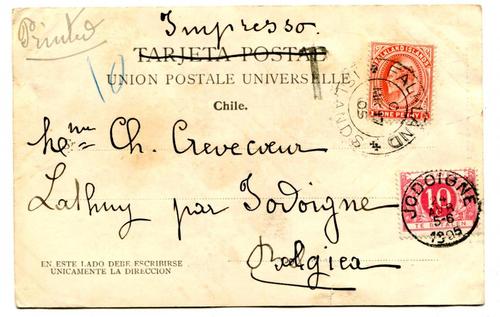 Printed
Impresso.
TARJETA POSTAL
10
T
UNION POSTALE UNIVERSELLE
FALKLAND ISLANDS
ONE PENNY
FALKLAND ISLANDS
05
Chile.
Ch. Crevecœur
Lathuy par Jodoigne
Belgica
JODOIGNE
5-6
1905
10
TE BETALEN
EN ESTE LADO DEBE ESCRIBIRSE
UNICAMENTE LA DIRECCION